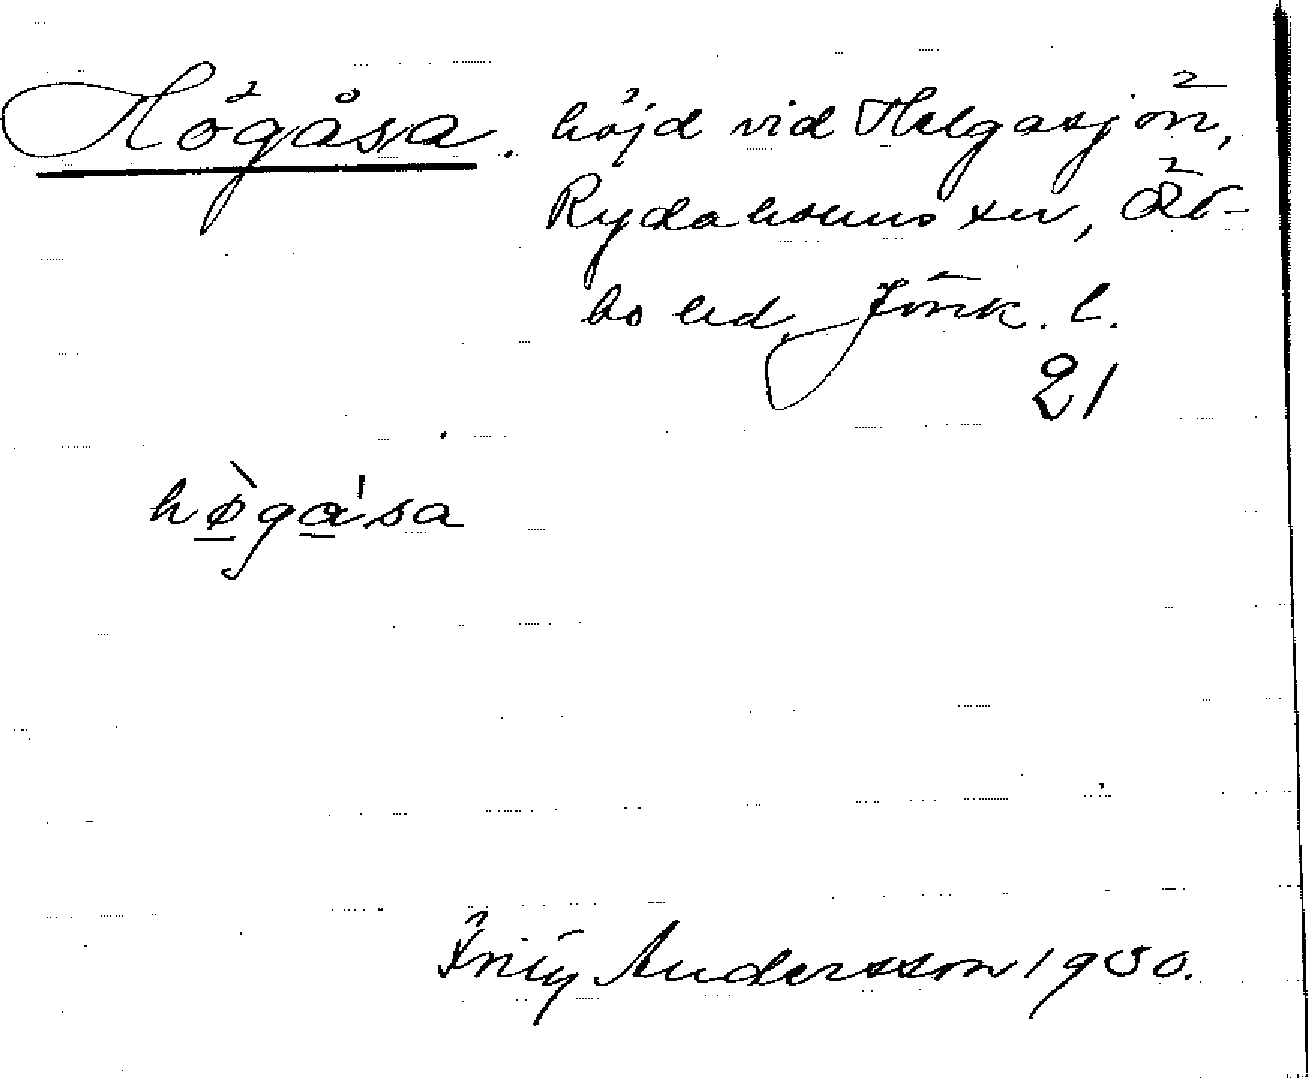 Högåsa. höjd vid Helgasjön,
Rydaholms sn, Öst-
bo hd, Jönk. l.
21
høgåsa
Andersson 1930.